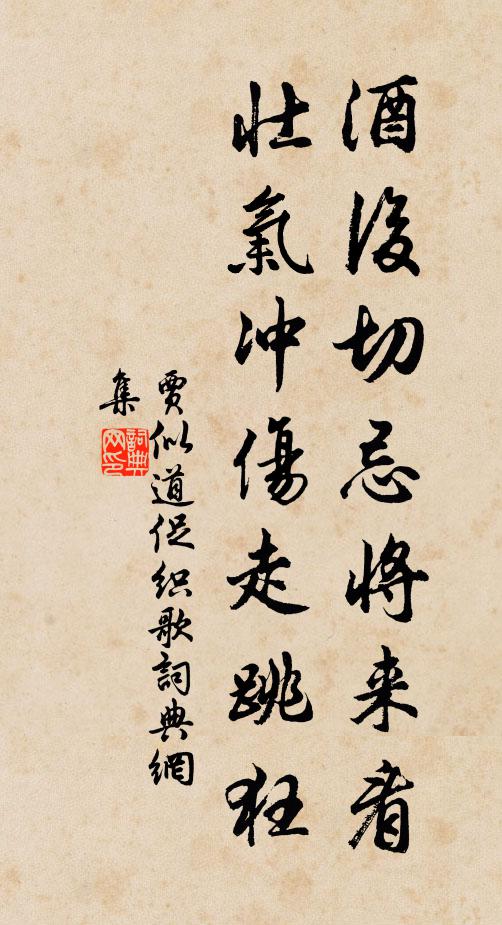 酒後切忌將来看
壮氣冲傷走跳狂
賈似道促织歌詞典網
集
詞典網印